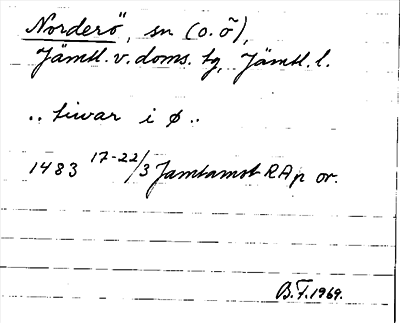 Norderö, sn (o. ö),
Jämtl. v. doms. tg, Jämtl. l.
.. tiwar i ø ..
1483 17-22/3 Jamtamot RAp or.
B.F. 1969.